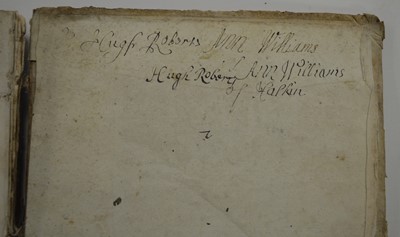 Hugh Roberts Ann Williams
Hugh Roberts Ann Williams
of Halkin